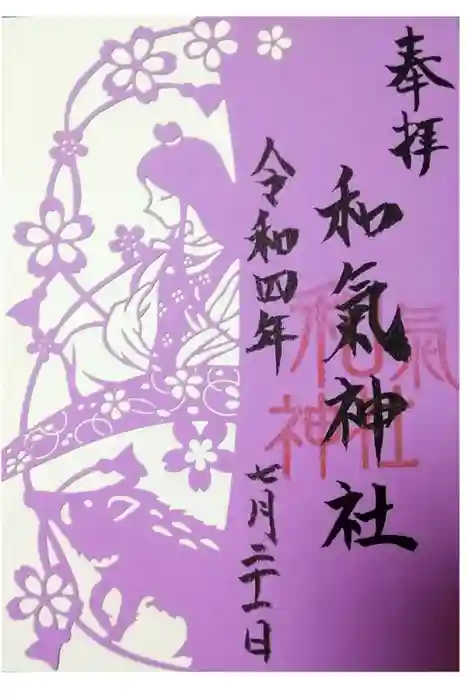 奉拝
和氣神社
和氣
神社
令和四年
七月二十一日